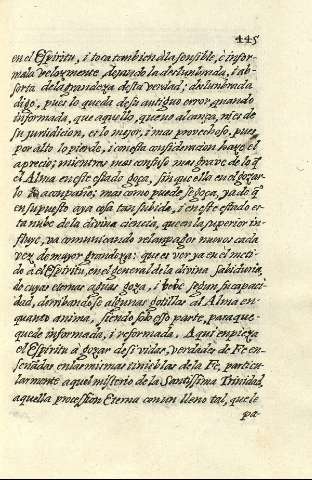 445
en el Espiritu, i toca tambien à la sensible, è infor-
mala velozmente, dejando la deslumbrada, i ab-
sorta de la grandeza desta verdad; deslumbrada
digo, pues lo queda de su antiguo error, quando
informada, que aquello, que no alcança, ni es de
su juridicion, es lo mejor, i mas provechoso, pues
por alto lo pierde, i con esta consideracion haze el
aprecio; mientras mas confuso mas grave de lo q̃
el Alma en este estado goça, sin que ella en el gozar
lo acompañe; mas como puede se goça, ya de q̃
en su puesto aya cosa tan subida, i en este estado es-
ta nube de la divina ciencia, que en la superior in-
fluye, va comunicando relampagos nuevos cada
vez de mayor grandeza: que es ver ya en el meti-
do à el Espiritu, en el general de la divina Sabiduria,
de cuyas eternas aguas goza, i bebe segun su capaci-
dad, derribandose algunas gotillas al Alma en
quanto anima, siendo solo esso parte, para que
quede informada, i reformada. Aqui enpieza
el Espiritu à gozar de si vidas, verdades de Fe en-
señadas en las mismas tinieblas de la Fe, particu-
larmente aquel misterio de la Santissima Trinidad,
aquella procession Eterna con un lleno tal, que le
pa